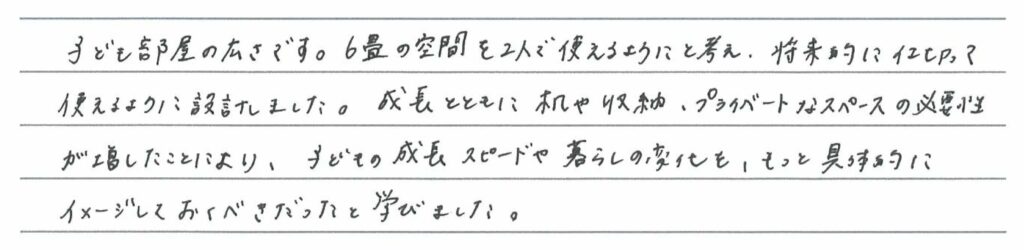 子ども部屋の広さです。6畳の空間を2人で使えるようにと考え、将来的に仕切って
使えるように設計しました。成長とともに机や収納、プライベートなスペースの必要性
が増したことにより、子どもの成長スピードや暮らしの変化を、もっと具体的に
イメージしておくべきだったと学びました。